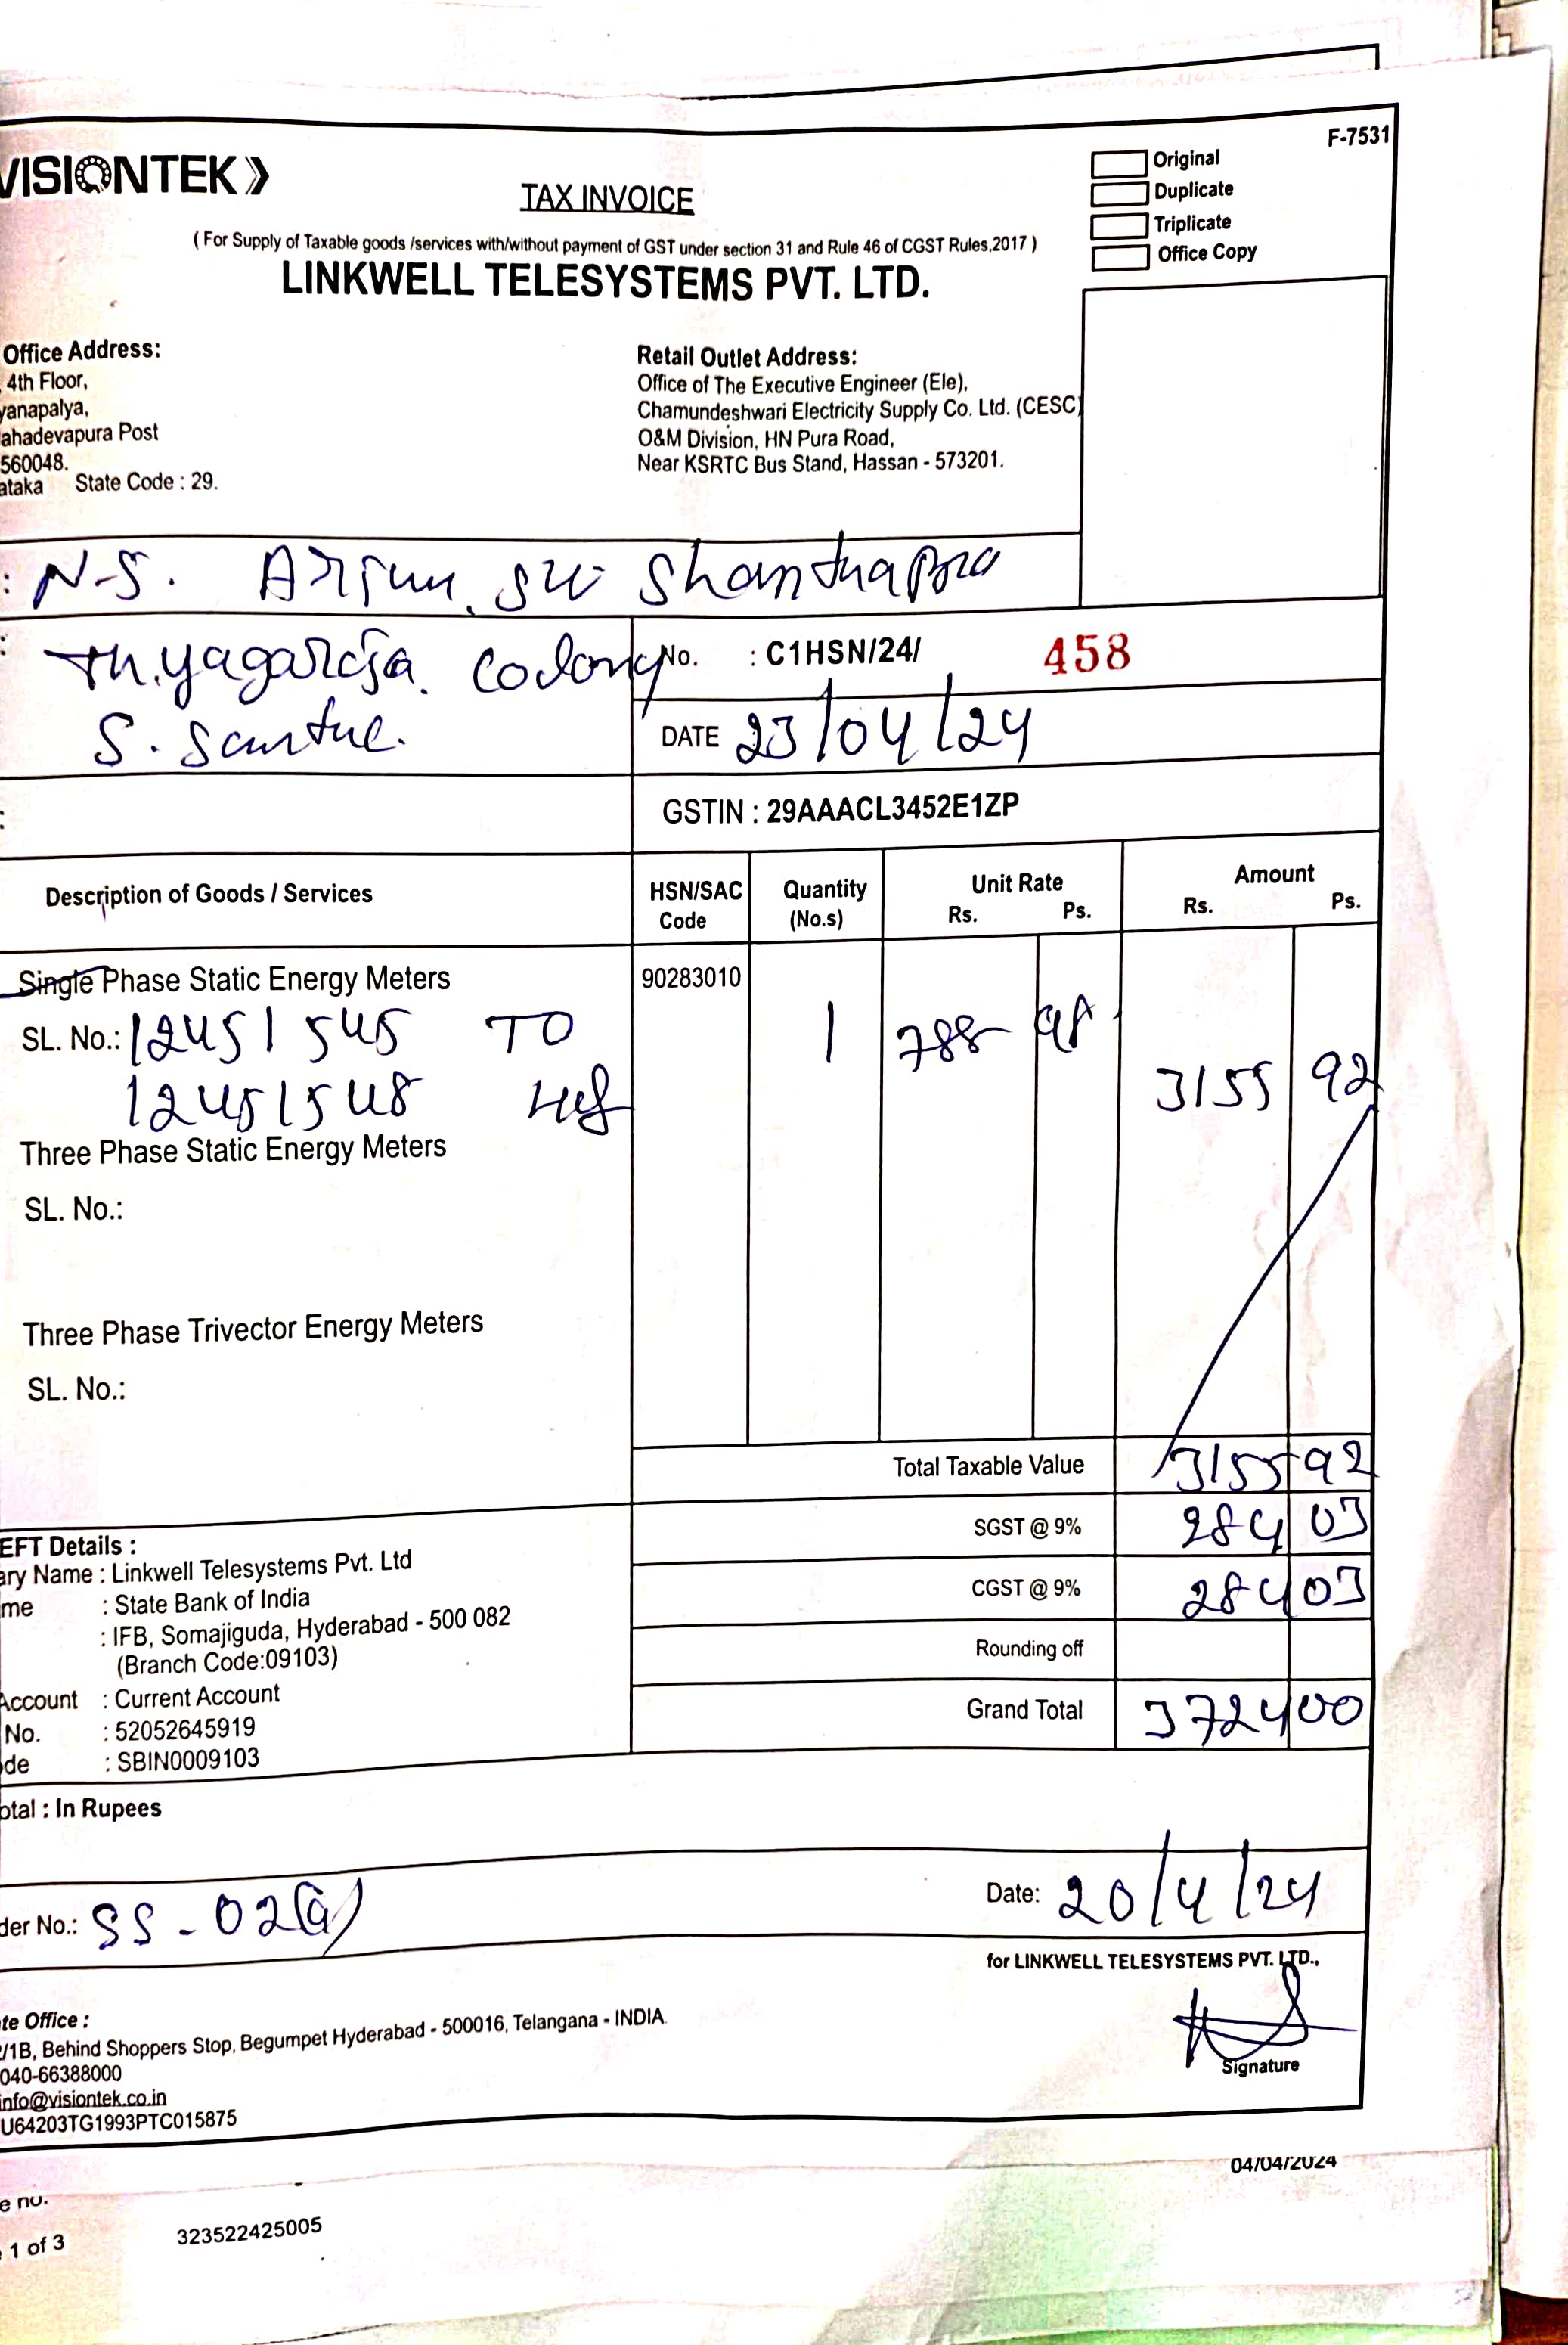 F-7531
VISIONTEK
TAX INVOICE
Original
Duplicate
Triplicate
Office Copy
( For Supply of Taxable goods /services with/without payment of GST under section 31 and Rule 46 of CGST Rules,2017 )
LINKWELL TELESYSTEMS PVT. LTD.
Office Address:
4th Floor,
yanapalya,
ahadevapura Post
560048.
ataka State Code : 29.
Retail Outlet Address:
Office of The Executive Engineer (Ele),
Chamundeshwari Electricity Supply Co. Ltd. (CESC)
O&M Division, HN Pura Road,
Near KSRTC Bus Stand, Hassan - 573201.
: N.S. Arjun
: Colony
S.
No. : C1HSN/24/ 458
DATE 23/04/24
:
GSTIN : 29AAACL3452E1ZP
Description of Goods / Services HSN/SAC Code Quantity (No.s) Unit Rate Rs. Ps. Amount Rs. Ps.
Single Phase Static Energy Meters 90283010
SL. No.: 12451545 TO 1 788 98
12451548 3155 92
Three Phase Static Energy Meters
SL. No.:
Three Phase Trivector Energy Meters
SL. No.:
Total Taxable Value 3155 92
SGST @ 9% 284 03
CGST @ 9% 284 03
Rounding off
Grand Total 3724 00
EFT Details :
ary Name : Linkwell Telesystems Pvt. Ltd
me : State Bank of India
: IFB, Somajiguda, Hyderabad - 500 082
(Branch Code:09103)
Account : Current Account
No. : 52052645919
de : SBIN0009103
otal : In Rupees
der No.: SS-02(a) Date: 20/4/24
for LINKWELL TELESYSTEMS PVT. LTD.,
Signature
te Office :
/1B, Behind Shoppers Stop, Begumpet Hyderabad - 500016, Telangana - INDIA
040-66388000
info@visiontek.co.in
U64203TG1993PTC015875
04/04/2024
e no.
1 of 3 323522425005